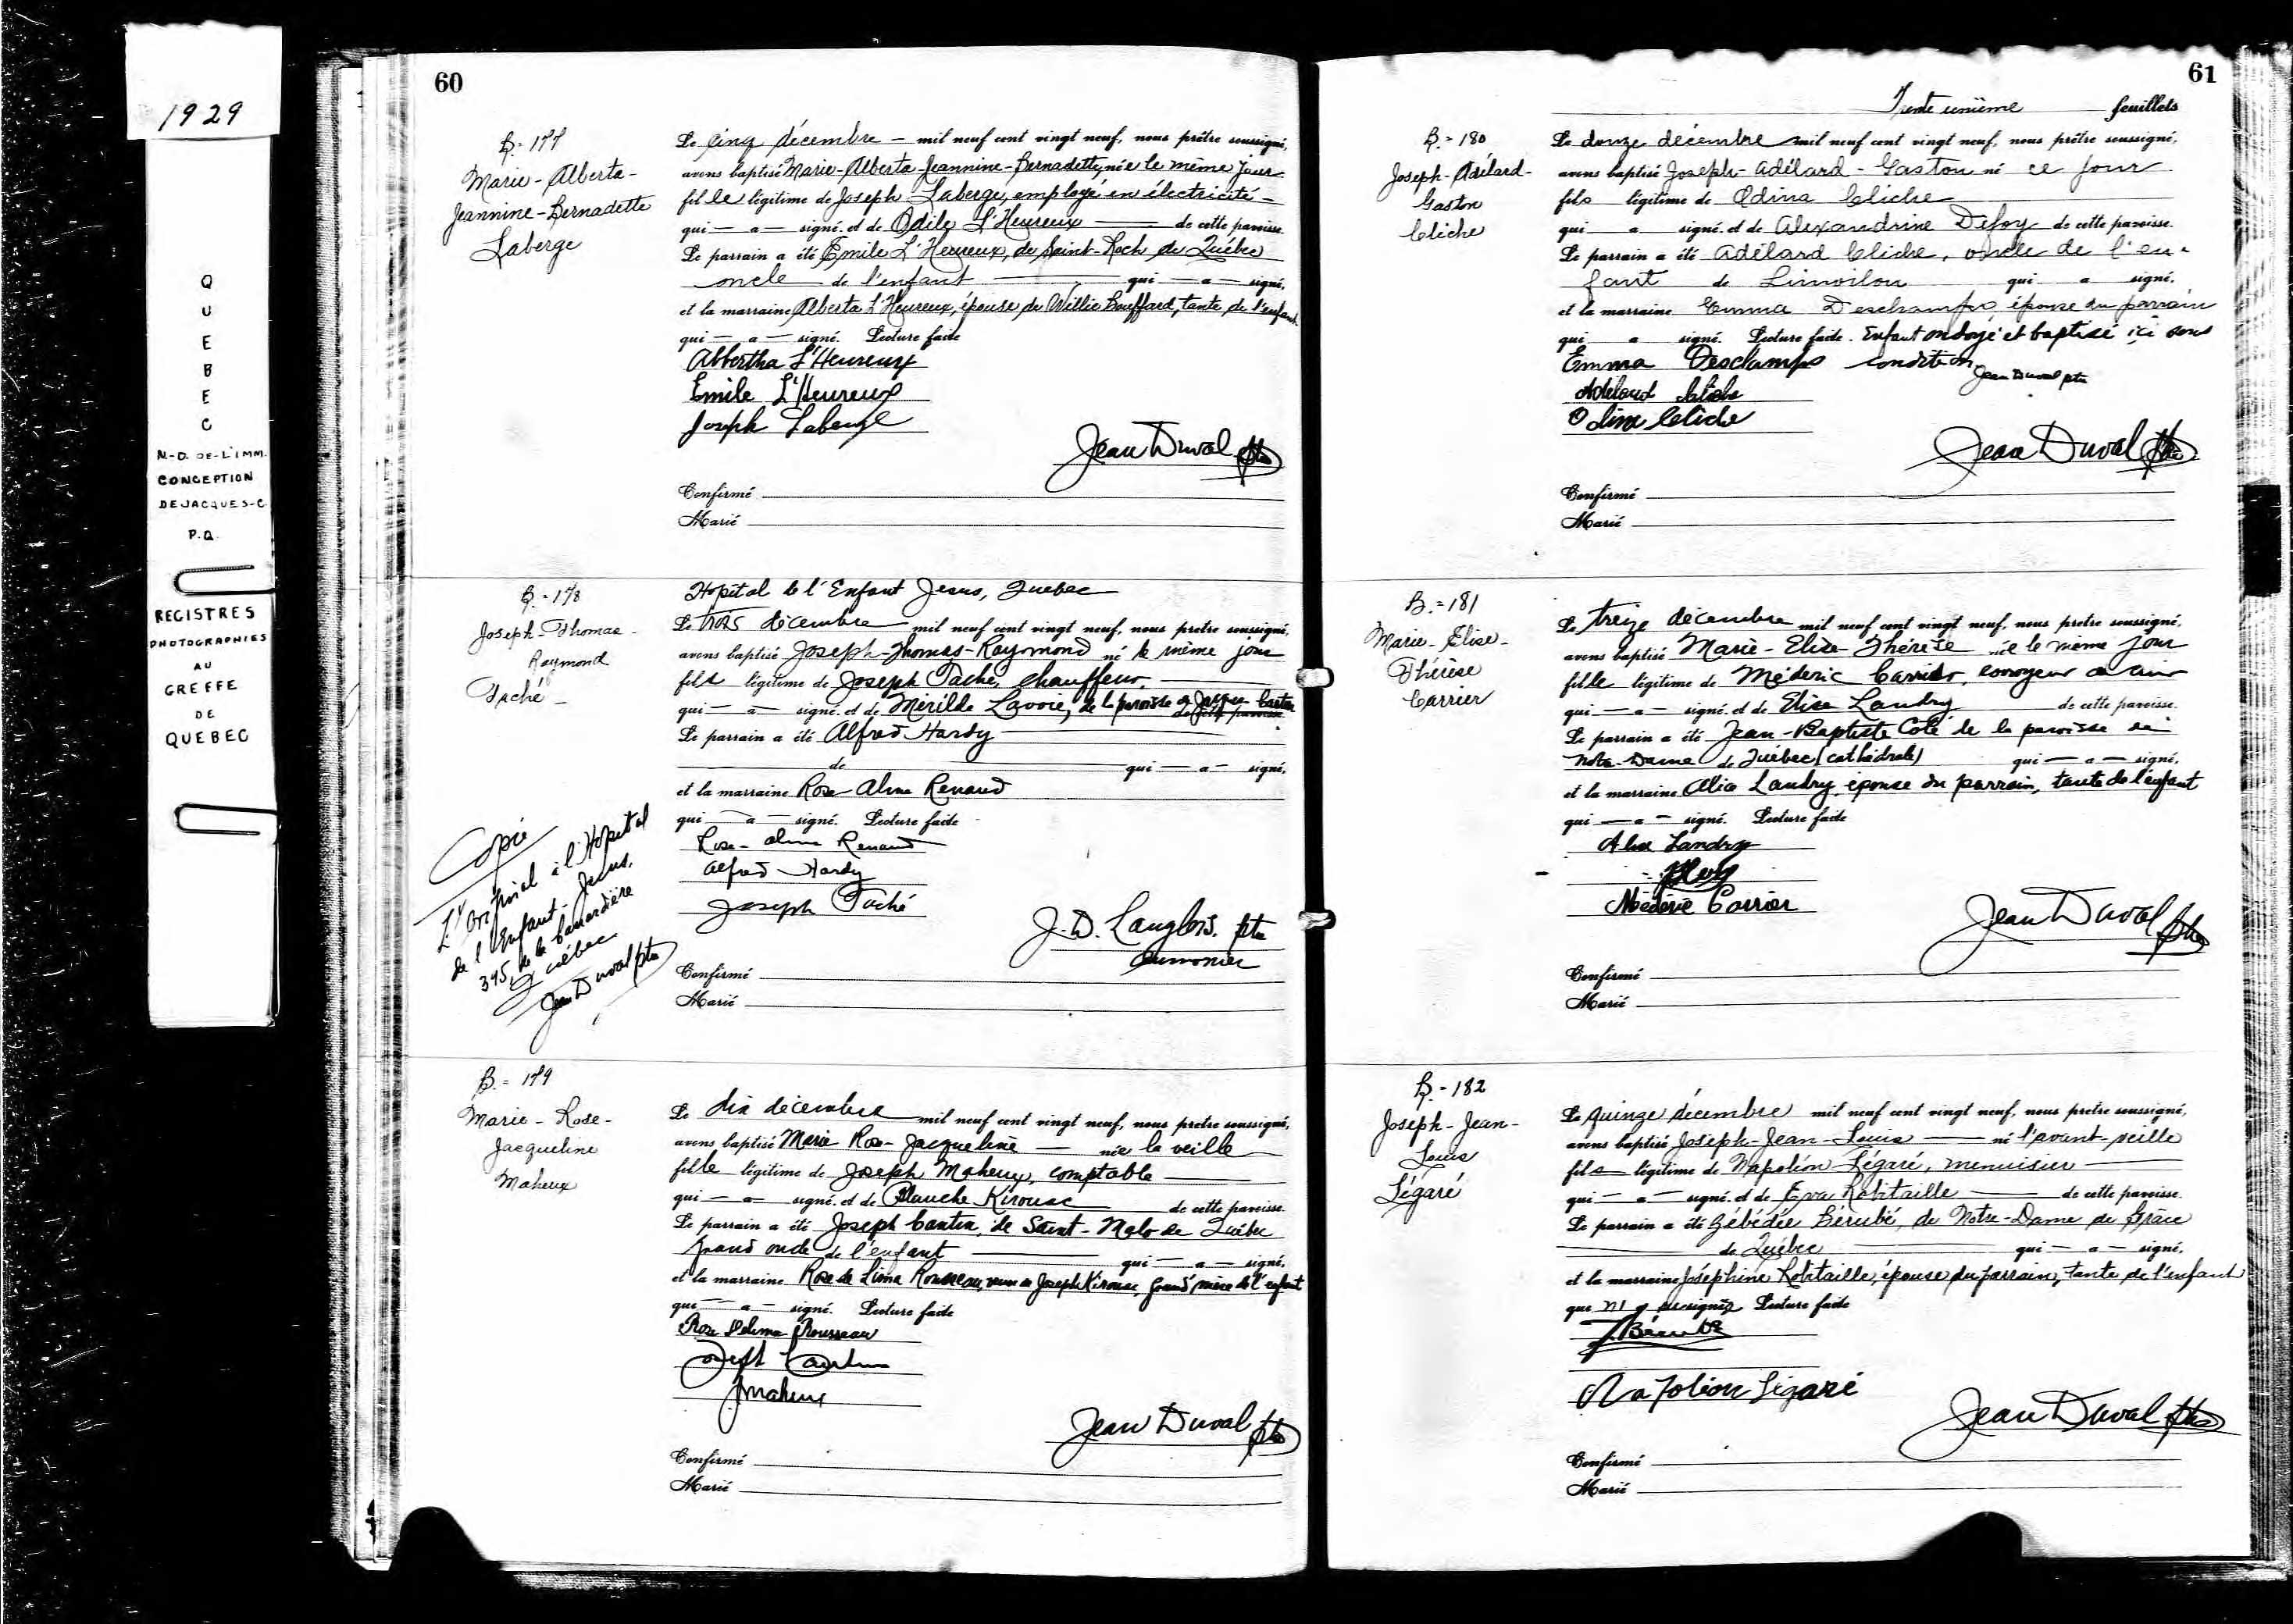 1929
QUEBEC
N-D. DE-L'IMM.
CONCEPTION
DE JACQUES-C.
P.Q.
REGISTRES
PHOTOGRAPHIES
AU
GREFFE
DE
QUEBEC
60
B.= 177
Marie-Alberta-
Jeannine-Bernadette
Laberge
Le cinq décembre — mil neuf cent vingt neuf, nous prêtre soussigné,
avons baptisé Marie-Alberta-Jeannine-Bernadette, née le même jour
fille légitime de Joseph Laberge, employé en électricité —
qui — a — signé. et de Odile L'Heureux — de cette paroisse.
Le parrain a été Emile L'Heureux, de Saint-Roch de Québec
oncle de l'enfant — qui — a — signé,
et la marraine Alberta L'Heureux, épouse de Willie Bouffard, tante de l'enfant
qui — a — signé. Lecture faite
Albertha L'Heureux
Emile L'Heureux
Joseph Laberge
Jean Duval ptre
Confirmé
Marié
B.= 178
Joseph-Thomas-
Raymond
Taché —
Hopital de l'Enfant Jesus, Quebec
Le trois décembre mil neuf cent vingt neuf, nous pretre soussigné,
avons baptisé Joseph-Thomas-Raymond né le même jour
fils légitime de Joseph Taché, chauffeur.
qui — a — signé. et de Mérilde Lavoie, de la paroisse de Jacques Cartier
de cette paroisse.
Le parrain a été Alfred Hardy
de qui — a — signé,
et la marraine Rose Alma Renaud
qui — a — signé. Lecture faite
Rose-Alma Renaud
Alfred Hardy
Joseph Taché
J.-D. Langlois. ptre
aumonier
Copie
L'Original à l'Hopital
de l'Enfant-Jesus,
395, de la Canardière
Québec
Jean Duval ptre
Confirmé
Marié
B.= 179
Marie-Rose-
Jacqueline
Maheux
Le dix décembre mil neuf cent vingt neuf, nous pretre soussigné,
avons baptisé Marie Rose-Jacqueline — née la veille
fille légitime de Joseph Maheux, comptable —
qui — a — signé. et de Blanche Kirouac de cette paroisse.
Le parrain a été Joseph Cantin, de Saint-Malo de Québec
grand oncle de l'enfant — qui — a — signé,
et la marraine Rose de Lima Rousseau, veuve de Joseph Kirouac, grand'mère de l'enfant
qui — a — signé. Lecture faite
Rose Delima Rousseau
Cantin
J Maheux
Jean Duval ptre
Confirmé
Marié
61
Trente unième feuillets
B.= 180
Joseph-Adélard-
Gaston
Cliche
Le douze décembre mil neuf cent vingt neuf, nous prêtre soussigné,
avons baptisé Joseph-Adélard-Gaston né ce jour
fils légitime de Odina Cliche
qui a signé. et de Alexandrine Defoy de cette paroisse.
Le parrain a été Adélard Cliche, oncle de l'en-
fant de Limoilou qui a signé,
et la marraine Emma Deschamps, épouse du parrain
qui a signé. Lecture faite. Enfant ondoyé et baptisé ici sous
condition. Jean Duval ptre
Emma Deschamps
Adelard Cliche
Odina Cliche
Jean Duval ptre
Confirmé
Marié
B.= 181
Marie-Elise-
Thérèse
Carrier
Le treize décembre mil neuf cent vingt neuf, nous pretre soussigné,
avons baptisé Marie-Elise-Thérèse née le même jour
fille légitime de Méderic Carrier, corroyeur de cuir
qui — a — signé. et de Elise Landry de cette paroisse.
Le parrain a été Jean-Baptiste Coté de la paroisse de
Notre-Dame de Québec (cathédrale) qui — a — signé,
et la marraine Alice Landry, épouse du parrain, tante de l'enfant
qui — a — signé. Lecture faite
Alice Landry
Médéric Carrier
Jean Duval ptre
Confirmé
Marié
B.= 182
Joseph-Jean-
Louis
Légaré
Le quinze décembre mil neuf cent vingt neuf, nous pretre soussigné,
avons baptisé Joseph-Jean-Louis — né l'avant-veille
fils légitime de Napoléon Légaré, menuisier —
qui — a — signé. et de Eva Robitaille — de cette paroisse.
Le parrain a été Zébédée Bérubé, de Notre-Dame de Grâce
de Québec qui — a — signé,
et la marraine Joséphine Robitaille, épouse du parrain, tante de l'enfant
qui n'a pu signer Lecture faite
Z Bérubé
Napoléon Légaré
Jean Duval ptre
Confirmé
Marié